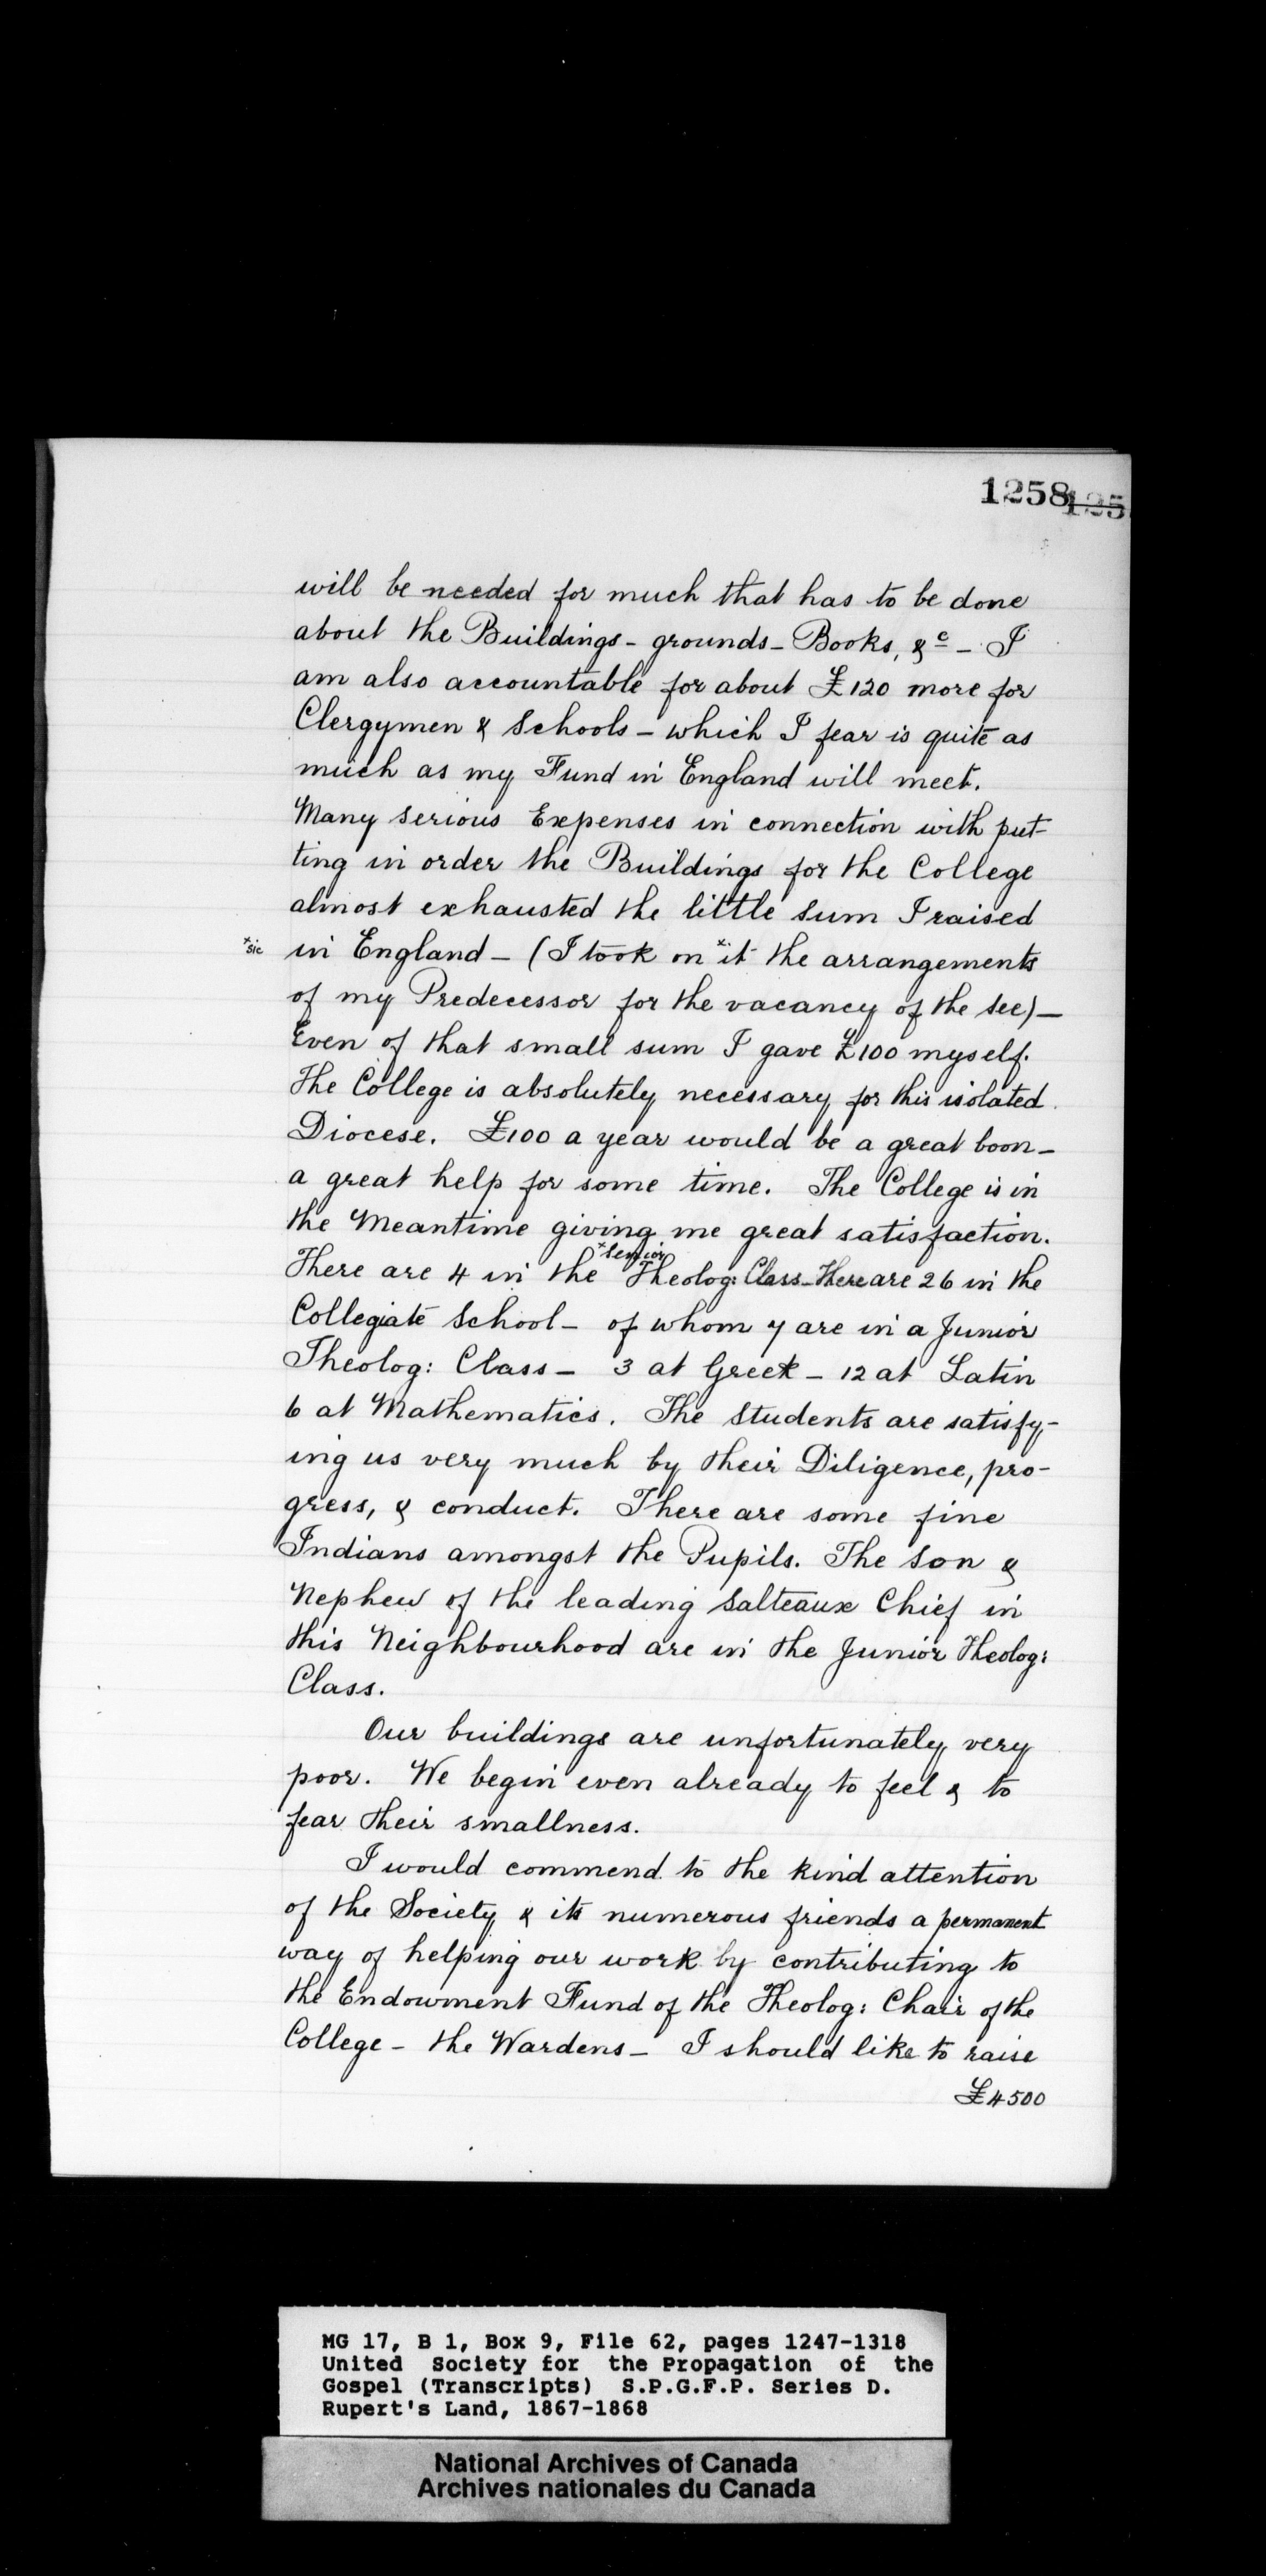 1258 125
will be needed for much that has to be done
about the Buildings - grounds - Books, &c - I
am also accountable for about £120 more for
Clergymen & Schools - which I fear is quite as
much as my Fund in England will meet.
Many serious Expenses in connection with put-
ting in order the Buildings for the College
almost exhausted the little sum I raised
x sic in England - (I took on x it the arrangements
of my Predecessor for the vacancy of the See) -
Even of that small sum I gave £100 myself.
The College is absolutely necessary for this isolated
Diocese. £100 a year would be a great boon -
a great help for some time. The College is in
the Meantime giving me great satisfaction.
x Senior
There are 4 in the Theolog: Class - There are 26 in the
Collegiate School - of whom 7 are in a Junior
Theolog: Class - 3 at Greek - 12 at Latin
6 at Mathematics. The Students are satisfy-
ing us very much by their Diligence, pro-
gress, & conduct. There are some fine
Indians amongst the Pupils. The Son &
Nephew of the leading Salteaux Chief in
this Neighbourhood are in the Junior Theolog:
Class.
Our buildings are unfortunately very
poor. We begin even already to feel & to
fear their smallness.
I would commend to the kind attention
of the Society & its numerous friends a permanent
way of helping our work by contributing to
the Endowment Fund of the Theolog: Chair of the
College - the Wardens - I should like to raise
£4500
MG 17, B 1, Box 9, File 62, pages 1247-1318
United Society for the Propagation of the
Gospel (Transcripts) S.P.G.F.P. Series D.
Rupert's Land, 1867-1868
National Archives of Canada
Archives nationales du Canada